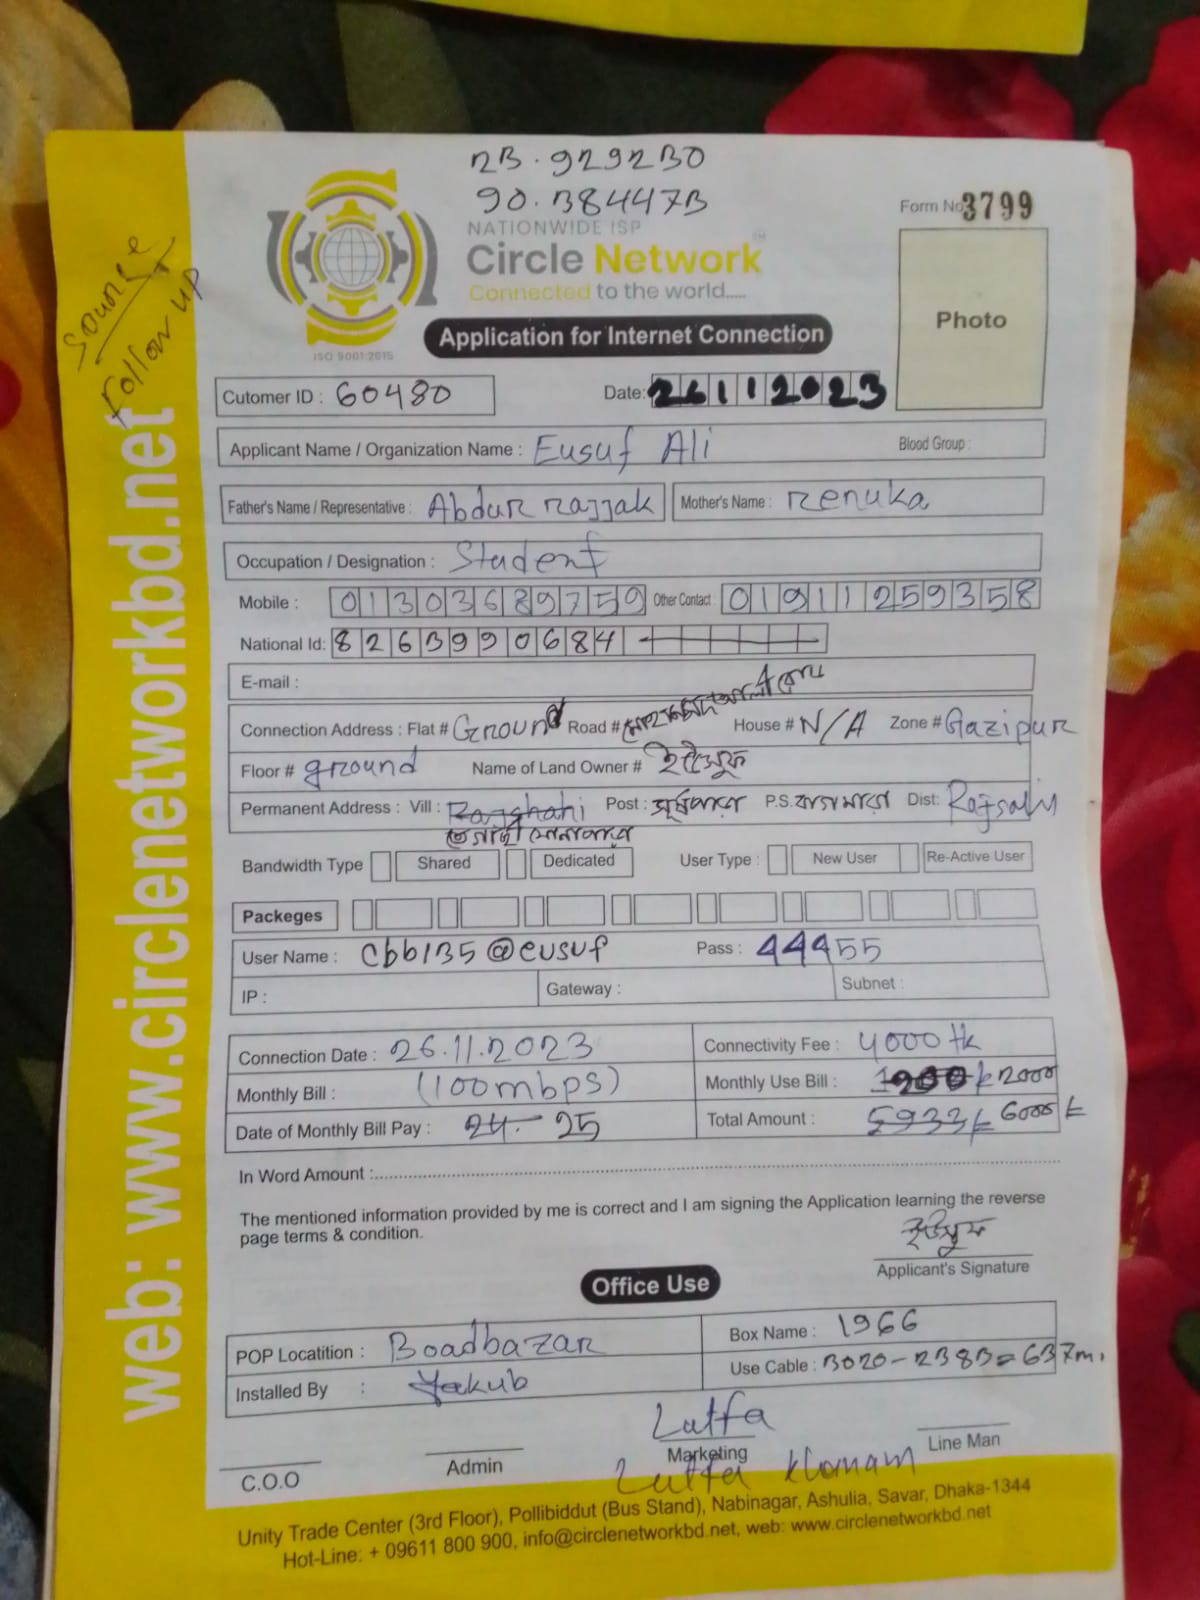 23.929230
90.384473
Form No 3799
NATIONWIDE ISP
Circle Network
Connected to the world.....
ISO 9001:2015
Photo
Source
Follow up
web: www.circlenetworkbd.net
Application for Internet Connection
Cutomer ID : 60480 Date: 26112023
Applicant Name / Organization Name : Eusuf Ali Blood Group :
Father's Name / Representative : Abdur razzak Mother's Name : renuka
Occupation / Designation : Student
Mobile : 01303689759 Other Contact : 01911259358
National Id: 8263990684
E-mail :
Connection Address : Flat # Ground Road # House # N/A Zone # Gazipur
Floor # ground Name of Land Owner #
Permanent Address : Vill : Rajshahi Post : P.S. Dist:
Bandwidth Type Shared Dedicated User Type : New User Re-Active User
Packeges
User Name : cbb135@eusuf Pass : 44455
IP : Gateway : Subnet :
Connection Date : 26.11.2023 Connectivity Fee : 4000 tk
Monthly Bill : (100mbps) Monthly Use Bill : 2000
Date of Monthly Bill Pay : 24 - 25 Total Amount : 5933 6000
In Word Amount :
The mentioned information provided by me is correct and I am signing the Application learning the reverse
page terms & condition.
Applicant's Signature
Office Use
POP Locatition : Boadbazar Box Name : 1966
Installed By : Yakub Use Cable : 3020-2383=637m.
Lutfa
C.O.O Admin Marketing Line Man
Lutfa khanam
Unity Trade Center (3rd Floor), Pollibiddut (Bus Stand), Nabinagar, Ashulia, Savar, Dhaka-1344
Hot-Line: + 09611 800 900, info@circlenetworkbd.net, web: www.circlenetworkbd.net